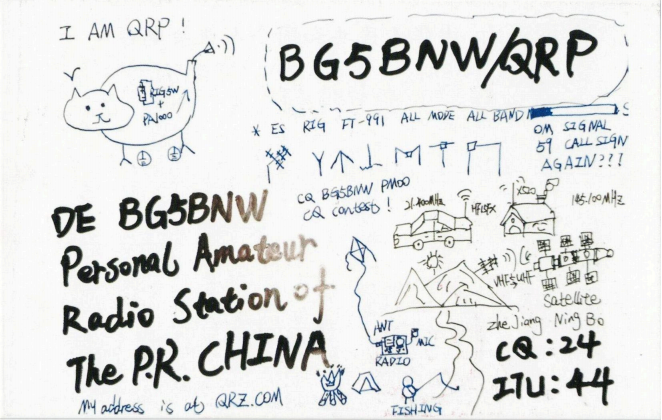 I AM QRP !
BG5BNW/QRP
RIG5W
+
PA1000
* ES RIG FT-991 ALL MODE ALL BAND
S
OM SIGNAL
59 CALL SIGN
AGAIN???
CQ BG5BNW PM00
CQ contest !
X520
145.100MHz
DE BG5BNW
Personal Amateur
Radio Station of
The P.R. CHINA
VHF&UHF
Satellite
ZheJiang NingBo
ANT
MIC
RADIO
CQ:24
ITU:44
My address is at QRZ.COM
FISHING